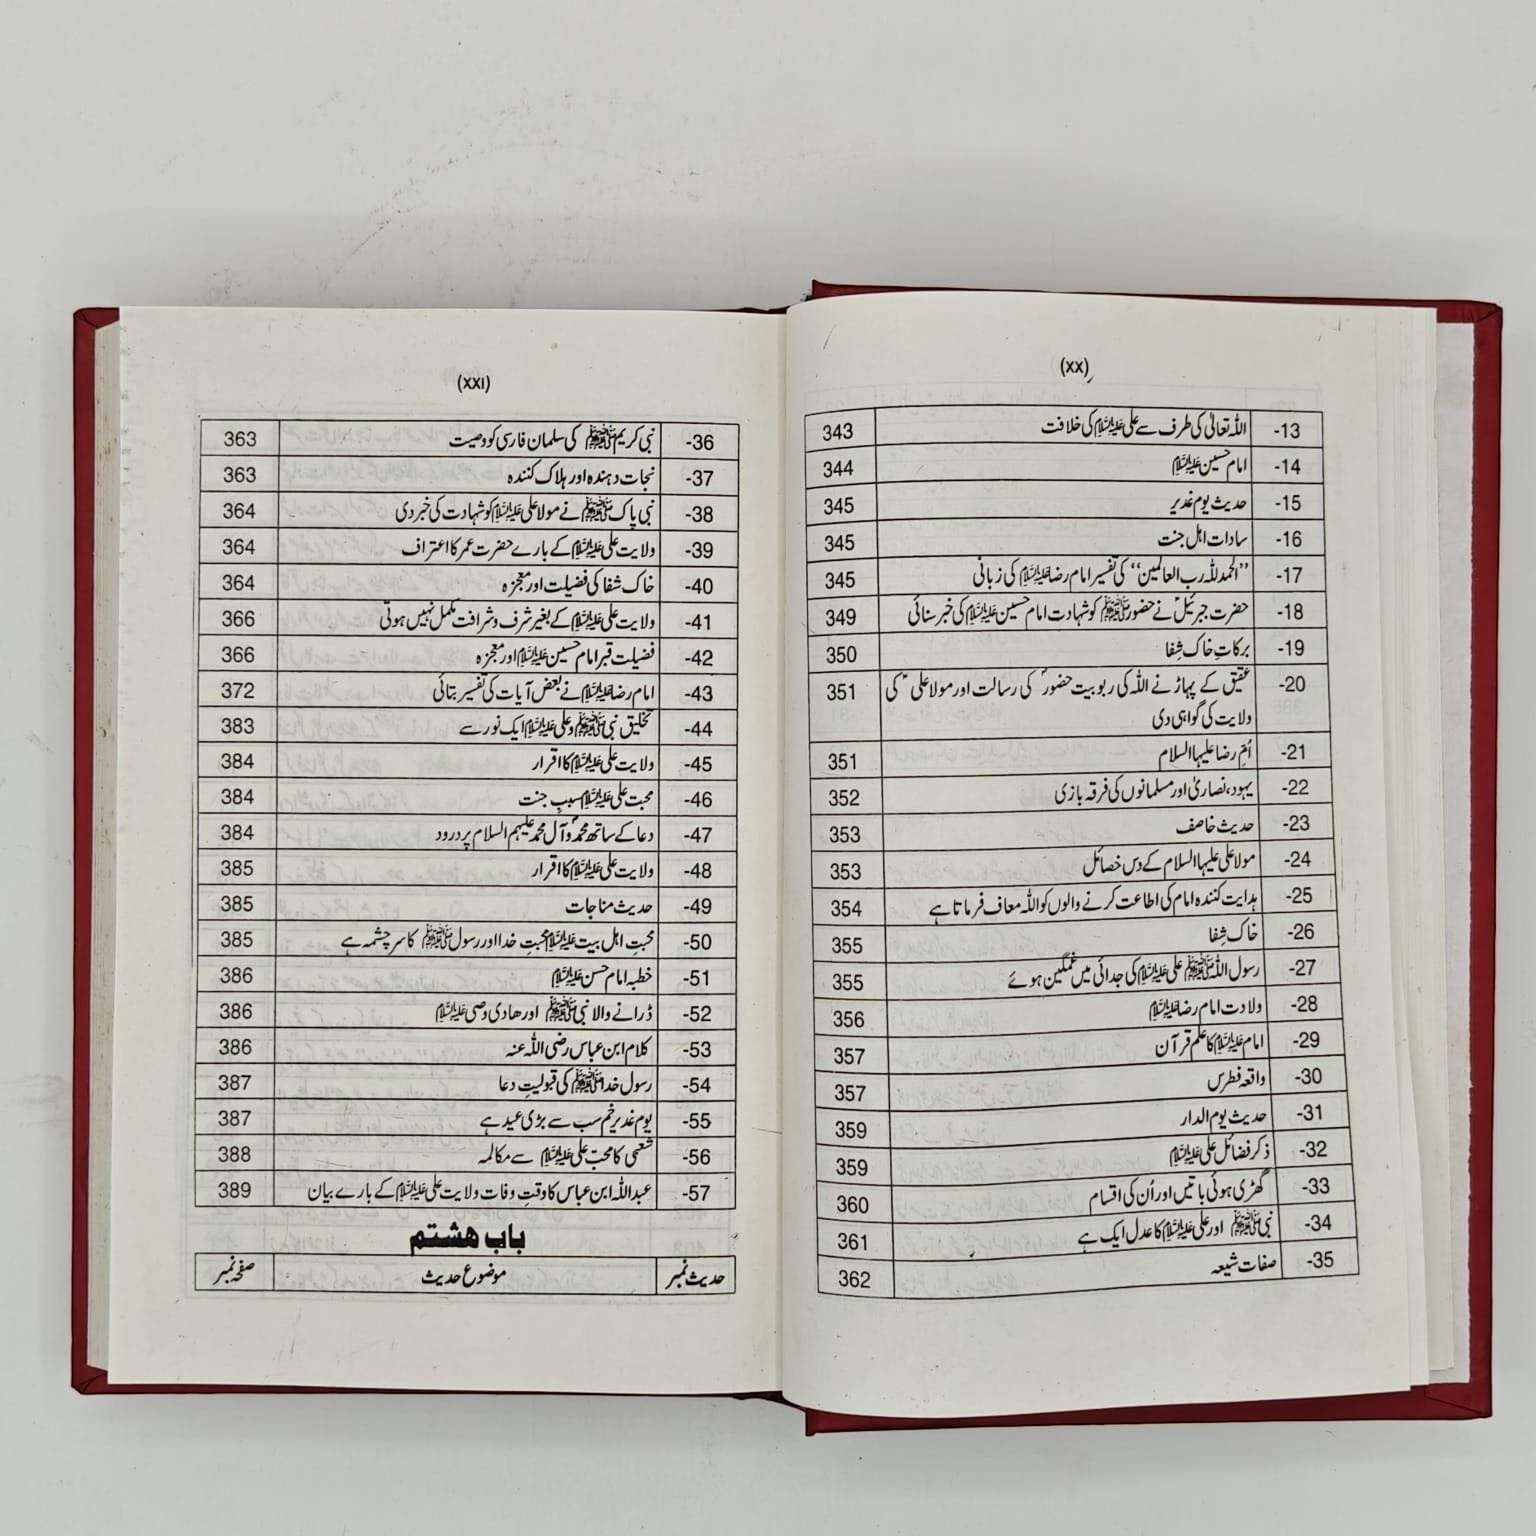 (xx)
13- اللہ تعالیٰ کی طرف سے علی علیہ السلام کی خلافت 343
14- امام حسین علیہ السلام 344
15- حدیث یوم غدیر 345
16- سادات اہل جنت 345
17- ’’الحمد للہ رب العالمین‘‘ کی تفسیر امام رضا علیہ السلام کی زبانی 345
18- حضرت جبرئیلؑ نے حضور ﷺ کو شہادت امام حسین علیہ السلام کی خبر سنائی 349
19- برکاتِ خاک شِفا 350
20- عقیق کے پہاڑ نے اللہ کی ربوبیت حضورؐ کی رسالت اور مولا علیؑ کی 351
ولایت کی گواہی دی
21- اُمِ رضا علیہا السلام 351
22- یہود، نصاریٰ اور مسلمانوں کی فرقہ بازی 352
23- حدیث خاصف 353
24- مولا علی علیہا السلام کے دس خصائل 353
25- ہدایت کنندہ امام کی اطاعت کرنے والوں کو اللہ معاف فرماتا ہے 354
26- خاک شِفا 355
27- رسول اللہ ﷺ علی علیہ السلام کی جدائی میں غمگین ہوئے 355
28- ولادت امام رضا علیہ السلام 356
29- امام علیہ السلام کا علم قرآن 357
30- واقعہ فطرس 357
31- حدیث یوم الدار 359
32- ذکر فضائل علی علیہ السلام 359
33- گھڑی ہوئی باتیں اور اُن کی اقسام 360
34- نبی ﷺ اور علی علیہ السلام کا عدل ایک ہے 361
35- صفات شیعہ 362
(xxi)
36- نبی کریم ﷺ کی سلمان فارسی کو وصیت 363
37- نجات دہندہ اور ہلاک کنندہ 363
38- نبی پاک ﷺ نے مولا علی علیہ السلام کو شہادت کی خبر دی 364
39- ولایت علی علیہ السلام کے بارے حضرت عمر کا اعتراف 364
40- خاک شفا کی فضیلت اور معجزہ 364
41- ولایت علی علیہ السلام کے بغیر شرف و شرافت مکمل نہیں ہوتی 366
42- فضیلت قبر امام حسین علیہ السلام اور معجزہ 366
43- امام رضا علیہ السلام نے بعض آیات کی تفسیر بتائی 372
44- تخلیق نبی ﷺ و علی علیہ السلام ایک نور سے 383
45- ولایت علی علیہ السلام کا اقرار 384
46- محبت علی علیہ السلام سببِ جنت 384
47- دعا کے ساتھ محمدؐ و آل محمد علیہم السلام پر درود 384
48- ولایت علی علیہ السلام کا اقرار 385
49- حدیث مناجات 385
50- محبتِ اہل بیت علیہ السلام محبتِ خدا اور رسول ﷺ کا سرچشمہ ہے 385
51- خطبہ امام حسن علیہ السلام 386
52- ڈرانے والا نبی ﷺ اور ھادی وصی علیہ السلام 386
53- کلام ابن عباس رضی اللہ عنہ 386
54- رسول خدا ﷺ کی قبولیتِ دعا 387
55- یوم غدیر خم سب سے بڑی عید ہے 387
56- شعمی کا محب علی علیہ السلام سے مکالمہ 388
57- عبداللہ ابن عباس کا وقتِ وفات ولایت علی علیہ السلام کے بارے بیان 389
باب ھشتم
حدیث نمبر موضوع حدیث صفحہ نمبر